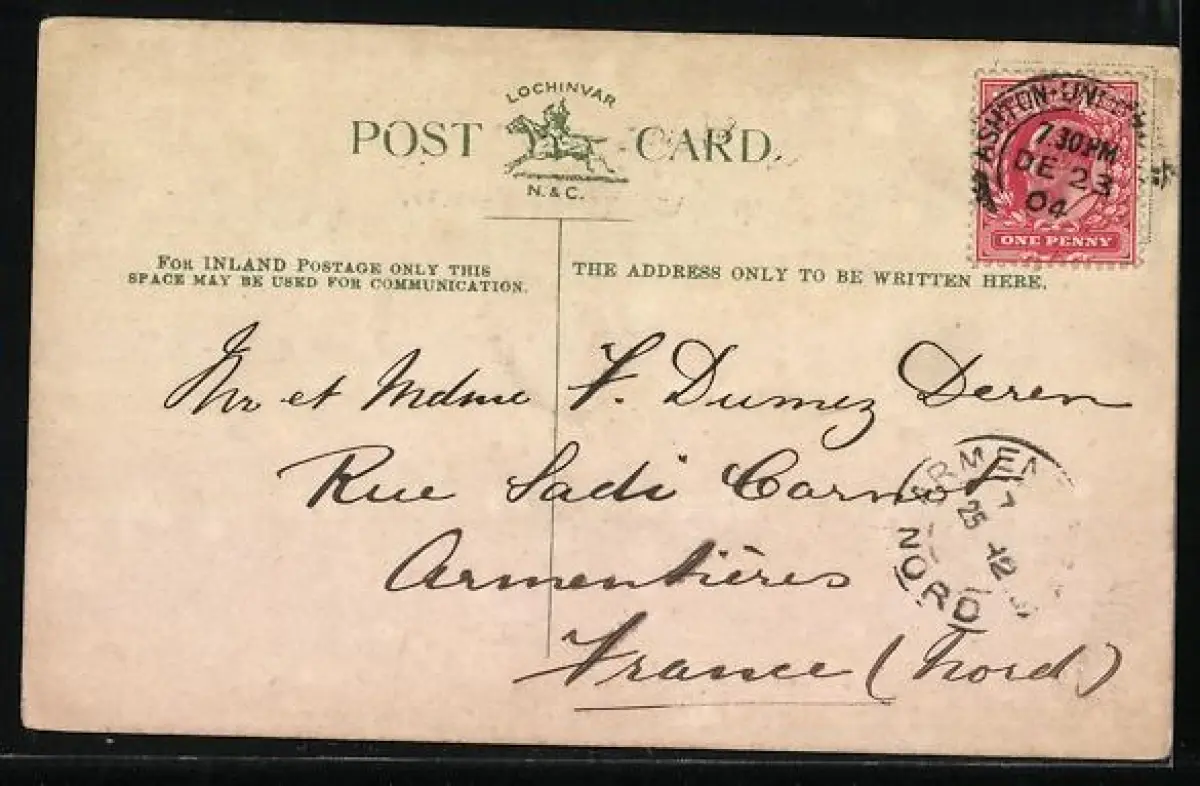 LOCHINVAR
POST CARD.
N. & C.
ASHTON-UND
7.30PM
DE 23
04
ONE PENNY
FOR INLAND POSTAGE ONLY THIS
SPACE MAY BE USED FOR COMMUNICATION.
THE ADDRESS ONLY TO BE WRITTEN HERE.
Mr et Mdme F. Dumez Deren
Rue Sadi Carnot
Armentières
France (Nord)
ARMEN
25 12
NORD